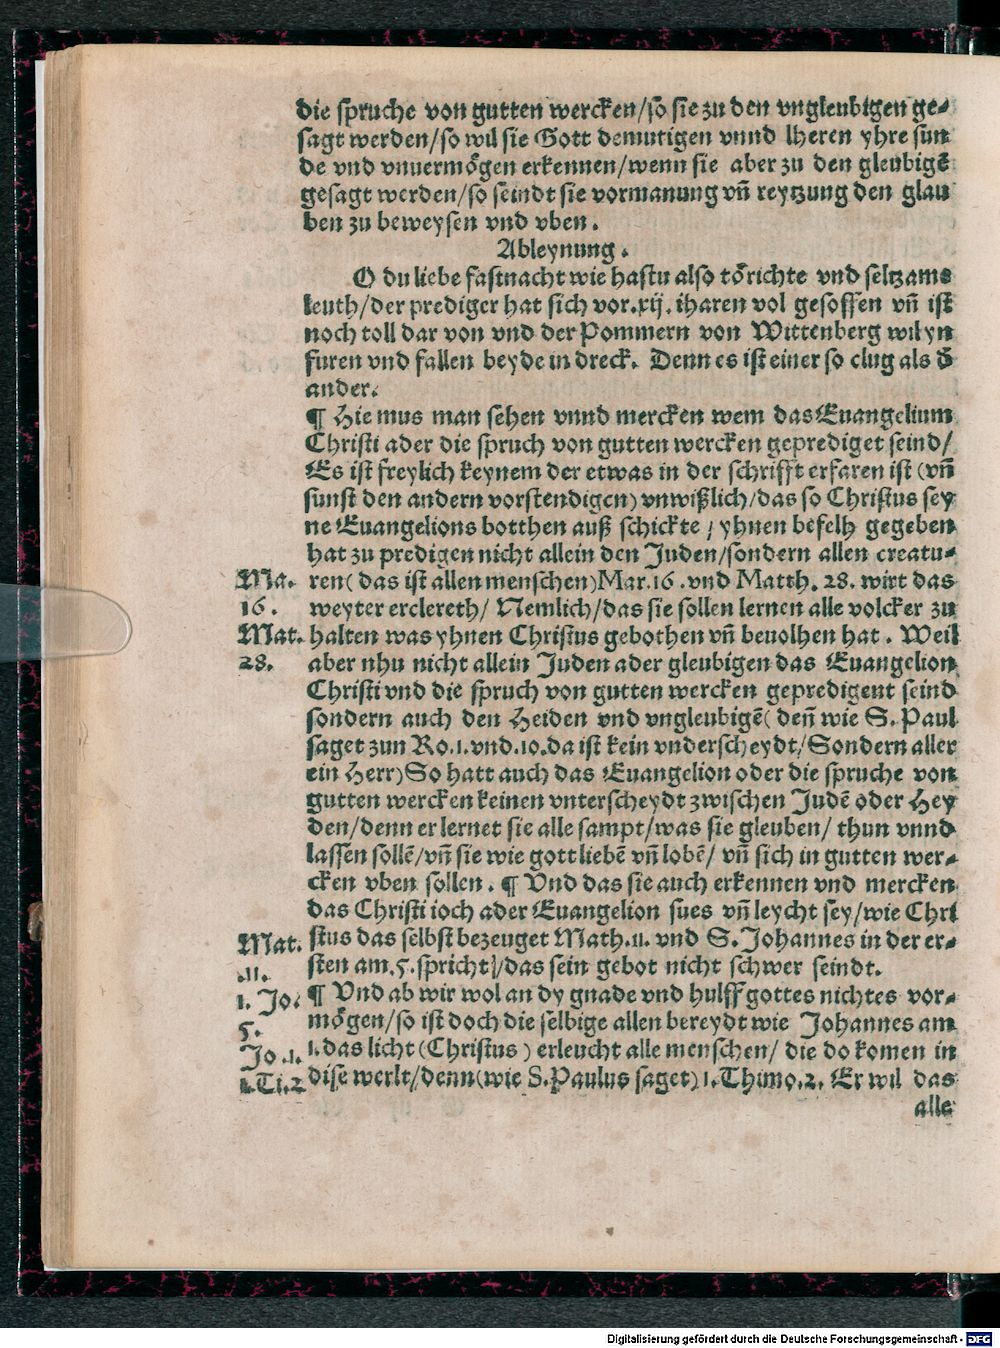 die spruche von gutten wercken/so sie zu den vngleubigen ge⸗
sagt werden/so wil sie Gott demutigen vnnd lheren yhre sun
de vnd vnuermoͤgen erkennen/wenn sie aber zu den gleubigē
gesagt werden/so seindt sie vormanung vñ reytzung den glau
ben zu beweysen vnd vben.
Ableynung.
O du liebe fastnacht wie hastu also toͤrichte vnd seltzame
leuth/der prediger hat sich vor.xij.iharen vol gesoffen vñ ist
noch toll dar von vnd der Pommern von Wittenberg wil yn
furen vnd fallen beyde in dreck. Denn es ist einer so clug als d̄
ander.
¶ Hie mus man sehen vnnd mercken wem das Euangelium
Christi ader die spruch von gutten wercken geprediget seind/
Es ist freylich keynem der etwas in der schrifft erfaren ist (vñ
sunst den andern vorstendigen) vnwißlich/das so Christus sey
ne Euangelions botthen auß schickte / yhnen befelh gegeben
hat zu predigen nicht allein den Juden/sondern allen creatu⸗
Ma. ren( das ist allen menschen)Mar.16.vnd Matth. 28. wirt das
16. weyter erclereth/ Nemlich/das sie sollen lernen alle volcker zu
Mat. halten was yhnen Christus gebothen vñ beuolhen hat. Weil
28. aber nhu nicht allein Juden ader gleubigen das Euangelion
Christi vnd die spruch von gutten wercken gepredigent seind
sondern auch den Heiden vnd vngleubigē( deñ wie S. Paul
saget zun Ro.1.vnd.10.da ist kein vnderscheydt/Sondern aller
ein Herr)So hatt auch das Euangelion oder die spruche von
gutten wercken keinen vnterscheydt zwischen Judē oder Hey
den/denn er lernet sie alle sampt/was sie gleuben/ thun vnnd
lassen sollē/vñ sie wie gott liebē vñ lobē/ vñ sich in gutten wer⸗
cken vben sollen. ¶ Vnd das sie auch erkennen vnd mercken
das Christi ioch ader Euangelion sues vñ leycht sey/wie Chri
Mat. stus das selbst bezeuget Math.11. vnd S.Johannes in der er⸗
.11. sten am.5.spricht/das sein gebot nicht schwer seindt.
1. Jo. ¶ Vnd ab wir wol an dy gnade vnd hulff gottes nichtes vor⸗
5. moͤgen/so ist doch die selbige allen bereydt wie Johannes am
Jo.1. 1.das licht (Christus) erleucht alle menschen/ die do komen in
1.Ti.2 dise werlt/denn(wie S.Paulus saget) 1.Thimo.2. Er wil das
alle
Digitalisierung gefördert durch die Deutsche Forschungsgemeinschaft - DFG